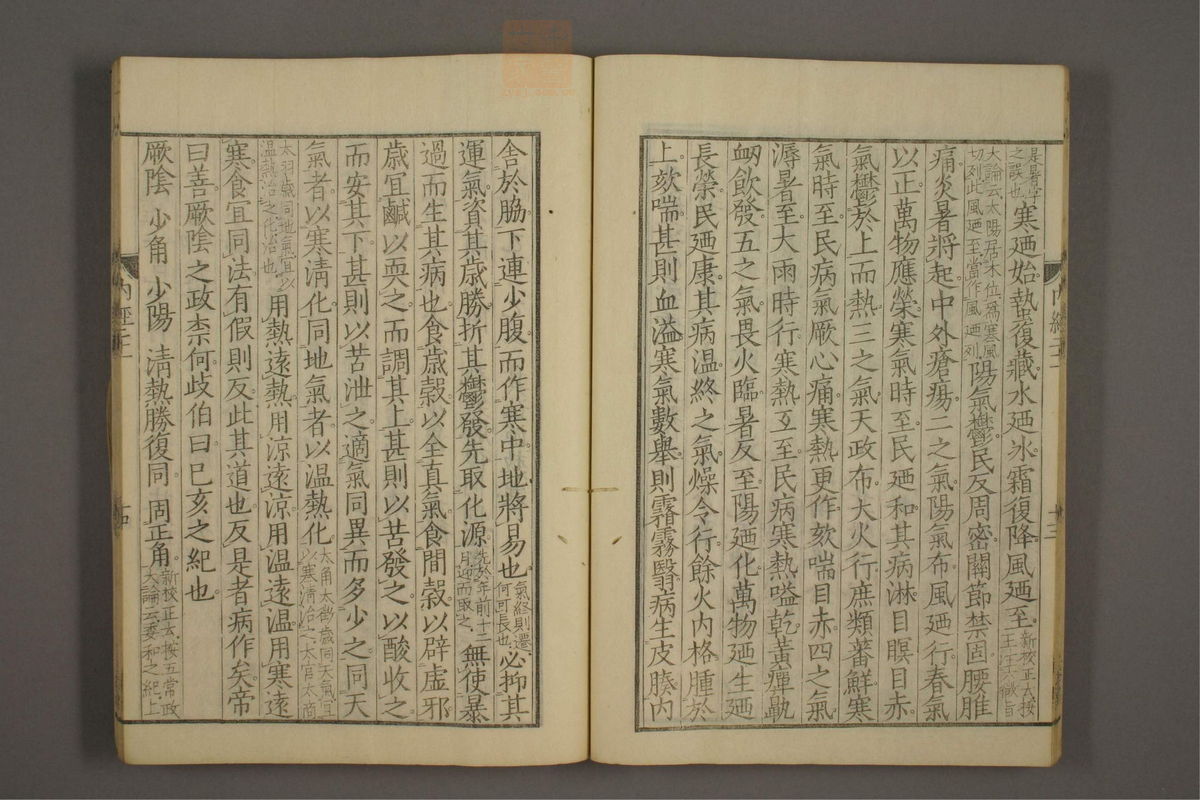 是暑字
之誤也
寒廼始蟄復藏水廼冰霜復降風廼至
新校正云按
王注六微旨
大論云太陽居木位爲寒風
切列此風廼至當作風廼列
陽氣鬱民反周密關節禁固腰脽
痛炎暑將起中外瘡瘍二之氣陽氣布風廼行春氣
以正萬物應榮寒氣時至民廼和其病淋目瞑目赤
氣鬱於上而熱三之氣天政布大火行庶類蕃鮮寒
氣時至民病氣厥心痛寒熱更作欬喘目赤四之氣
溽暑至大雨時行寒熱互至民病寒熱嗌乾黃癉鼽
衂飲發五之氣畏火臨暑反至陽廼化萬物廼生廼
長榮民廼康其病温終之氣燥令行餘火內格腫於
上欬喘甚則血溢寒氣數舉則霿霧翳病生皮腠內
舍於脇下連少腹而作寒中地將易也
氣終則遷
何可長也
必抑其
運氣資其歲勝折其鬱發先取化源
先於年前十二
月迎而取之
無使暴
過而生其病也食歲穀以全真氣食間穀以辟虛邪
歲宜鹹以耎之而調其上甚則以苦發之以酸收之
而安其下甚則以苦泄之適氣同異而多少之同天
氣者以寒清化同地氣者以温熱化
太角太徵歲同天氣宜
以寒清治之太宮太商
太羽歲同地氣宜以
温熱治之化治也
用熱遠熱用涼遠涼用温遠温用寒遠
寒食宜同法有假則反此其道也反是者病作矣帝
曰善厥陰之政柰何歧伯曰巳亥之紀也
厥陰 少角 少陽 清熱勝復同 同正角
新校正云按五常政
大論云委和之紀上